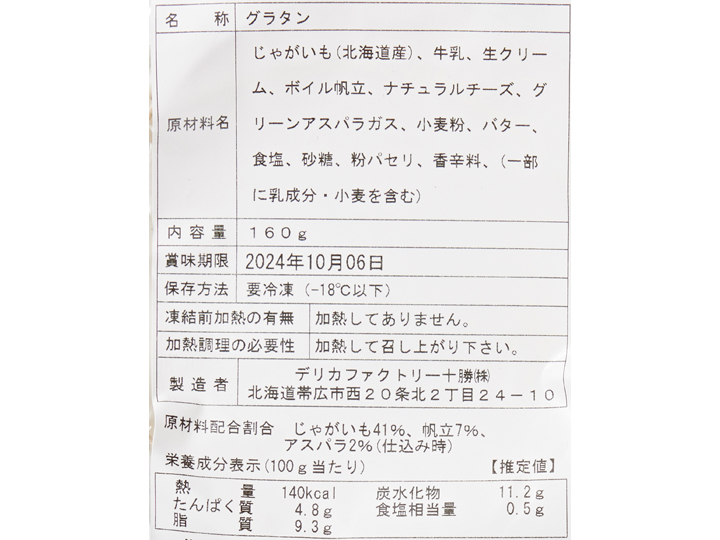 名称 グラタン
原材料名 じゃがいも(北海道産)、牛乳、生クリー
ム、ボイル帆立、ナチュラルチーズ、グ
リーンアスパラガス、小麦粉、バター、
食塩、砂糖、粉パセリ、香辛料、(一部
に乳成分・小麦を含む)
内容量 160g
賞味期限 2024年10月06日
保存方法 要冷凍(-18℃以下)
凍結前加熱の有無 加熱してありません。
加熱調理の必要性 加熱して召し上がり下さい。
製造者 デリカファクトリー十勝㈱
北海道帯広市西20条北2丁目24-10
原材料配合割合 じゃがいも41%、帆立7%、
アスパラ2%(仕込み時)
栄養成分表示(100g当たり) 【推定値】
熱量 140kcal 炭水化物 11.2g
たんぱく質 4.8g 食塩相当量 0.5g
脂質 9.3g